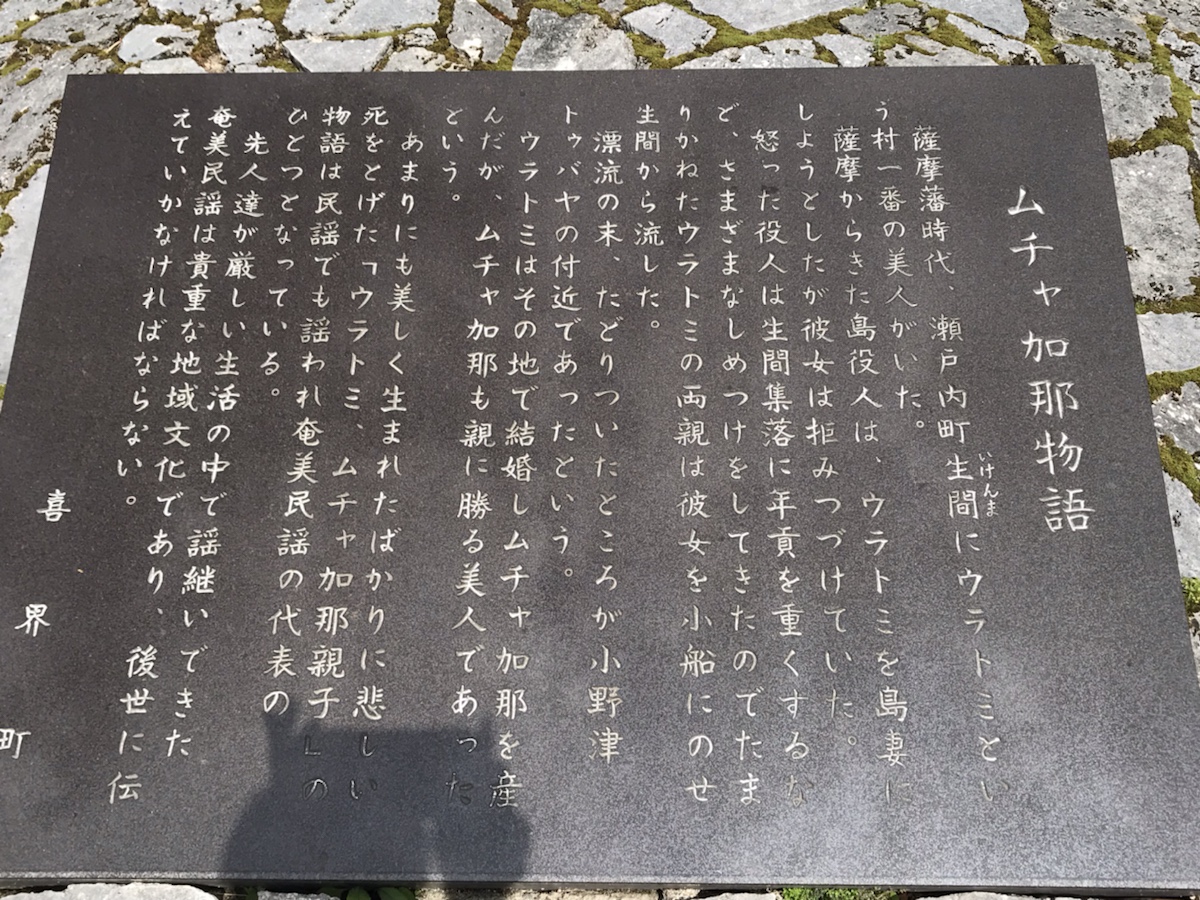 ムチャ加那物語
薩摩藩時代、瀬戸内町生間にウラトミとい
いけんま
う村一番の美人がいた。
薩摩からきた島役人は、ウラトミを島妻に
しようとしたが彼女は拒みつづけていた。
怒った役人は生間集落に年貢を重くするな
ど、さまざまなしめつけをしてきたのでたま
りかねたウラトミの両親は彼女を小船にのせ
生間から流した。
漂流の末、たどりついたところが小野津
トゥバヤの付近であったという。
ウラトミはその地で結婚しムチャ加那を産
んだが、ムチャ加那も親に勝る美人であった
という。
あまりにも美しく生まれたばかりに悲しい
死をとげた「ウラトミ、ムチャ加那親子」の
物語は民謡でも謡われ奄美民謡の代表の
ひとつとなっている。
先人達が厳しい生活の中で謡継いできた
奄美民謡は貴重な地域文化であり、後世に伝
えていかなければならない。
喜界町